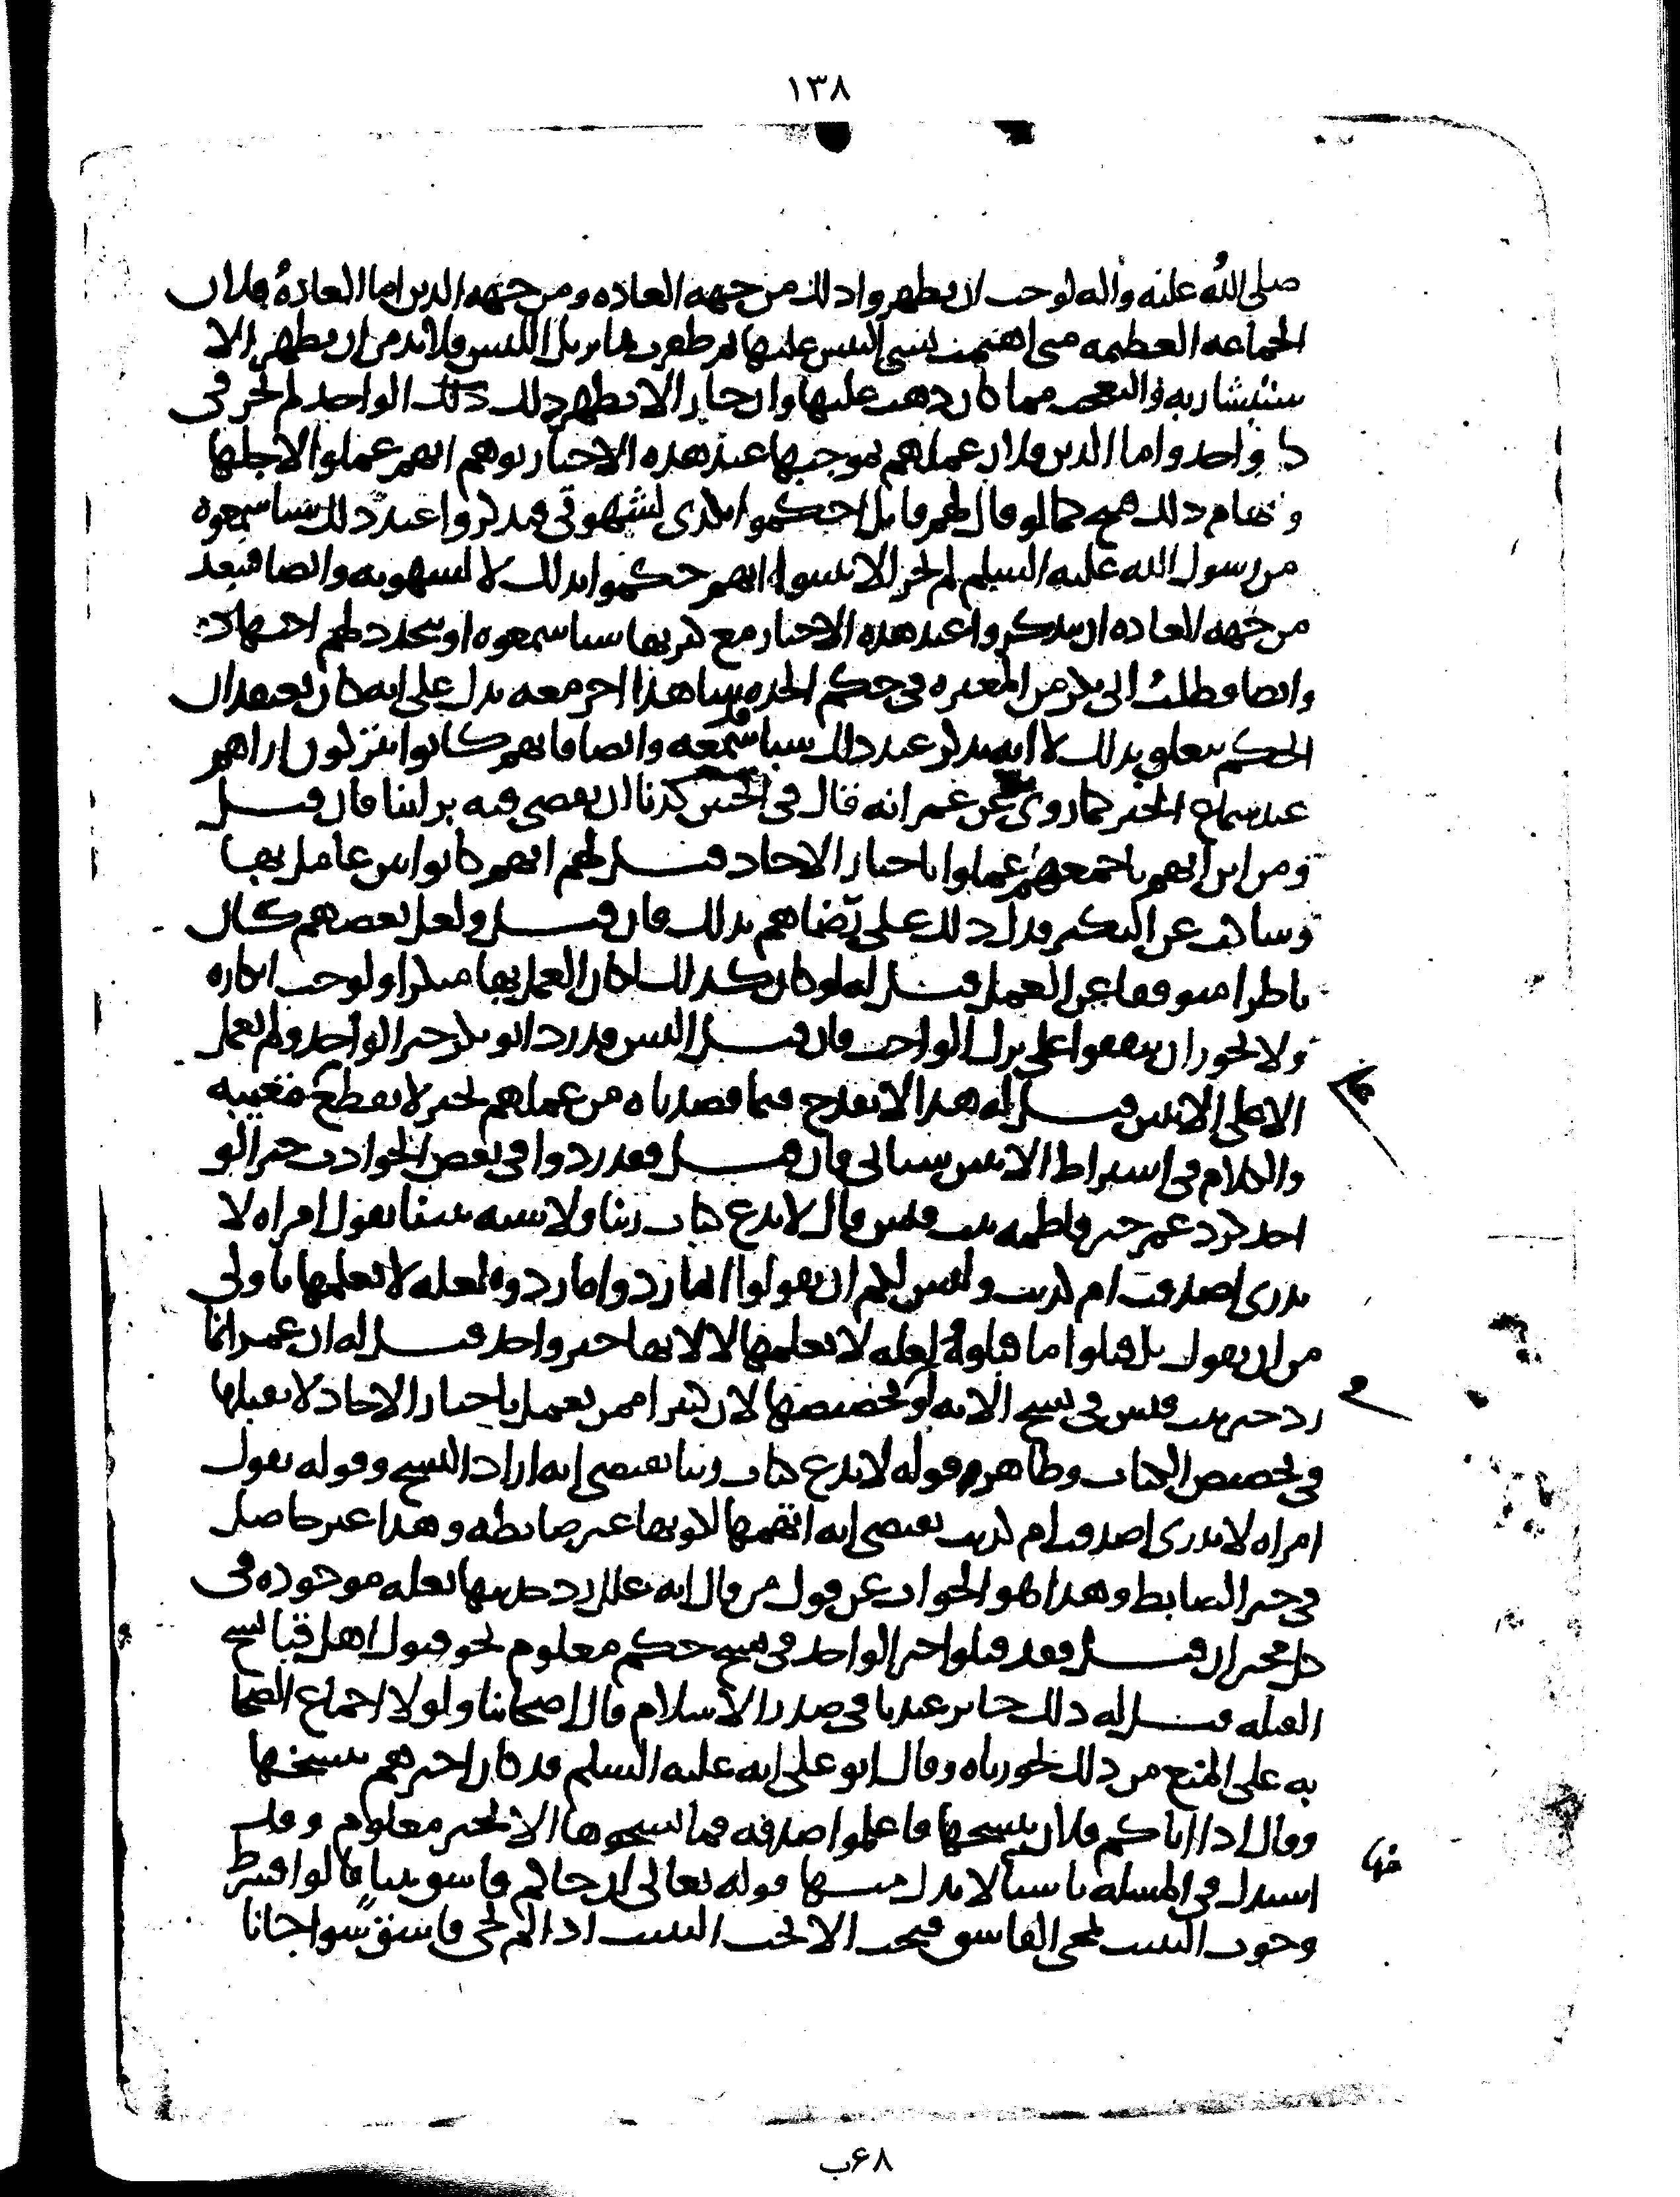 ١٣٨
صلى الله عليه وآله لوجب ان يظهروا ذلك من جهه العاده ومن جهه الدين اما العادهُ فلان
الجماعه العظيمه متى اهتمت بشى التبس عليها ثم ظفرت بما يزيل اللبس فلا بد من ان يظهر الا
ستبشار به والتعجب مما كان ذهب عليها وان جاز الا يظهر ذلك ذلك الواحد لم يجز فى
كل واحد واما الدين فلان عملهم بموجبها عند هذه الاخبار يوهم انهم عملوا لاجلها
ذلك قبيح كما لو قال لهم قايل احكموا لشهوتى فتذكروا عند ذلك شيا سمعوه
من رسول الله عليه السلم لم يجز الا يبينوا انهم حكموا بذلك لا لشهوته وايضا فبعد
من جهه العاده ان يتذكروا عند هذه الاخبار مع كثرتها شيا سمعوه او يتجدد لهم اجتهاد
وايضا فطلب ابى بكر من المغيره فى حكم الجده شاهدا اخر معه يدل على انه كان يعتقد ان
الحكم يتعلق بذلك لا انه يتذكر عند ذلك شيا قد سمعه وايضا فانهم كانوا يتركون اراهم
عند سماع الخبر كما روى عن عمر انه قال فى الجنين كدنا ان نقضى فيه براينا فان قيل
ومن اين انهم باجمعهم عملوا باخبار الاحاد قيل لهم انهم كانوا بين عامل بها
وساكت عن النكير فدل ذلك على رضاهم بذلك فان قيل ولعل بعضهم كان
ناظرا متوقفا عن العمل قيل له لو كان كذلك لكان العمل بها منكرا ولوجب انكاره
ولا يجوز ان يتفقوا على ترك الواجب فان قيل اليس قد رد ابو بكر خبر الواحد ولم يعمل
الا على الاثنين قيل له هذا لا يقدح فيما قصدناه من عملهم بخبر لا يقطع مغيبه
والكلام فى اشتراط الاثنين سياتى فان قيل فقد ردوا فى بعض الحوادث خبر الو
احد كرد عمر خبر فاطمه بنت قيس وقال لا ندع كتاب ربنا ولا سنه نبينا بقول امراه لا
ندرى اصدقت ام كذبت وليس لكم ان تقولوا انما ردوا ما ردوه لعله لا نعلمها باولى
من ان نقول بل قبلوا ما قبلوهُ لعله لا نعلمها لا لانها خبر واحد قيل له ان عمر انما
رد خبر بنت قيس فى نسخ الايه او تخصيصها لان كثيرا ممن يعمل باخبار الاحاد لا يقبلها
فى تخصيص الكتاب وظاهر قوله لا ندع كتاب ربنا يقتضى انه اراد النسخ وقوله بقول
امراه لا ندرى اصدقت ام كذبت يقتضى انه اتهمها لكونها غير ضابطه وهذا غير حاصل
فى خبر الضابط وهذا هو الجواب عن قول من قال انه علل رد حديثها بعله موجوده فى
كل مخبر ان قيل فقد قبلوا خبر الواحد فى نسخ حكم معلوم نحو قبول اهل قبا نسخ
القبله قيل له ذلك جايز عندنا فى صدر الاسلام قال اصحابنا ولولا اجماع الصحا
به على المنع من ذلك لجوزناه وقال ابو على انه عليه السلم قد كان اخبرهم بنسخها
وقال اذا اتاكم فلان بنسخها فاعلموا صدقه فما نسخوها الا بخبر معلوم وقد
استدل فى المسله باشيا لا يدل منها قوله تعالى ان جاكم فاسق بنبا قالوا فشرط
وجوب التثبت لمجى الفاسق فيجب الا يجب التثبت اذا لم يجى فاسق سوا جانا
٦٨ب